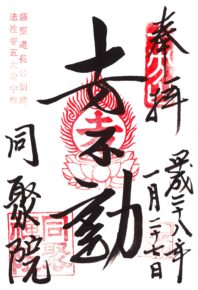 奉拝
平成二十八年
一月二十七日
十万不動
藤原道長公創建
法性寺五大堂中尊
同聚院